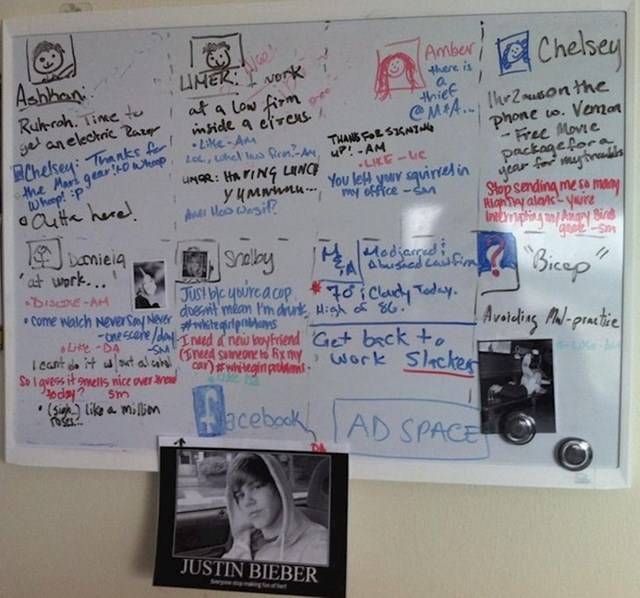 Ashkan:
Ruh-roh. Time to
get an electric Razor
Chelsey: Thanks for
the Mani gear! :D whoop
Whoop! :P
Outta here!
UMER: I work
at a law firm
inside a circus.
• Like - AM
LOL, what law firm? - AM
UMER: HAVING LUNCH
YUMMMMM...
Amber
there is
a
thief
@ M&A...
THANKS FOR SIGNING
UP! - AM
• LIKE - UC
You left your squirrel in
my office - SM
Chelsey
1hr 2 mins on the
phone w. Verizon
- Free Movie
package for a
year for my troubles
Stop sending me so many
High Tky alerts - you're
interrupting my Angry Birds
game - SM
Daniela
"at work..."
• DISLIKE - AM
• Come watch Never Say Never
- one scene/day
- SM
• Like - DA
I can't do it w/out alcohol
So I guess it smells nice over there
today? SM
• (sigh..) like a million
roses...
Shelby
Just b/c you're a cop
doesn't mean I'm drunk
#whitegirlproblems
I need a new boyfriend
(I need someone to fix my
car) #whitegirlproblems
• Like DA
M&A
70°; Cloudy Today.
High of 86.
Get back to
work Slacker
"Bicep"
Avoiding Mal-practice
facebook
AD SPACE
DA
JUSTIN BIEBER
Everyone stop making fun of her!